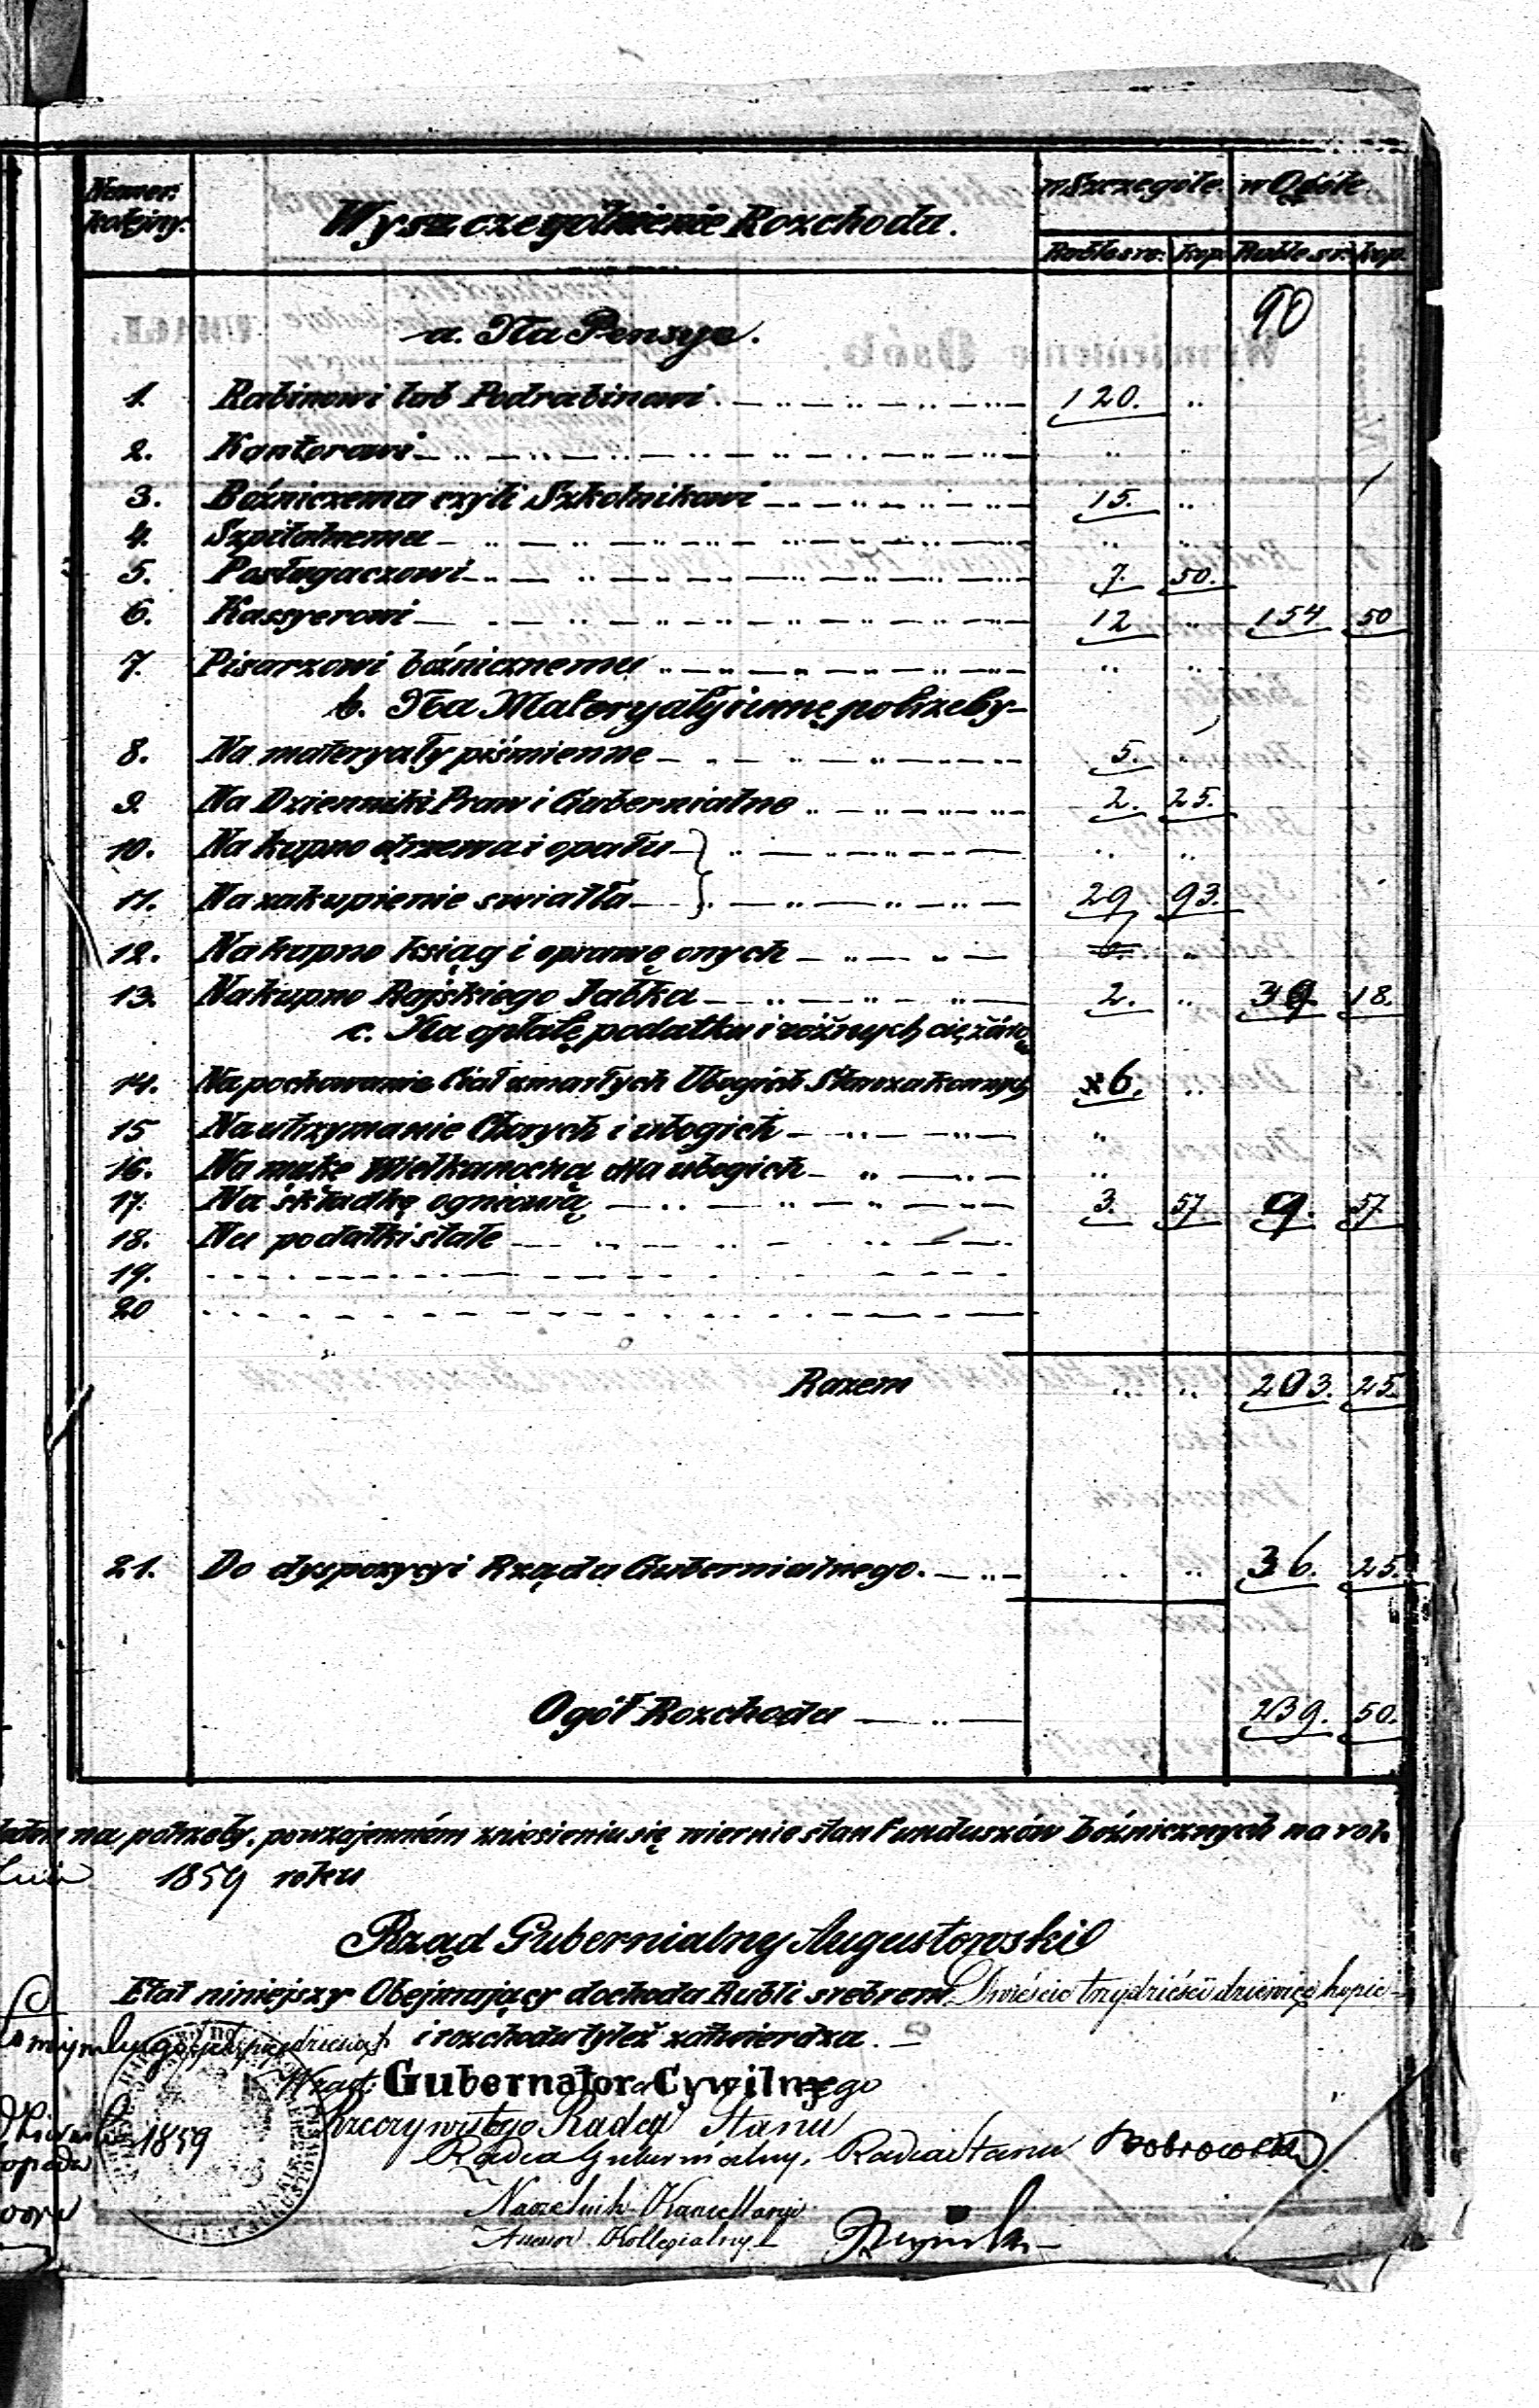 Numer kolejny. Wyszczególnienie Rozchodu. w Szczególe. w Ogóle
Ruble sre: kop. Ruble sr: kop.
90
a. Na Pensye.
1. Rabinowi lub Podrabinowi 120. ..
2. Kantorowi .. ..
3. Bóżniczemu czyli Szkolnikowi 15. ..
4. Szpitalnemu .. ..
5. Posługaczowi 7. 50.
6. Kassyerowi 12 .. 154 50
7. Pisarzowi bóżnicznemu .. ..
b. Na Materyały i inne potrzeby
8. Na materyały piśmienne 5. ..
9. Na Dzienniki Praw i Gubernialne 2. 25.
10. Na kupno drzewa i opału .. ..
11. Na zakupienie swiatła 29 93.
12. Na kupno ksiąg i oprawę onych ..
13. Na kupno Rajskiego Jabka 2. .. 39 18.
c. Na opłatę podatku i różnych ciężarów
14. Na pochowanie Ciał zmarłych Ubogich Starozakonnych 6. ..
15 Na utrzymanie Chorych i ubogich ..
16. Na mąkę Wielkanocną dla ubogich ..
17. Na składkę ogniową 3. 57. 9. 57.
18. Na podatki stałe
19.
20
Razem .. .. 203. 25.
21. Do dyspozycyi Rządu Gubernialnego. .. .. 36. 25.
Ogół Rozchodu 239. 50.
na potrzeby, po wzajemném zniesieniu się wiernie stan Funduszów bóżnicznych na rok
1859 roku
Rząd Gubernialny Augustowski
Etat niniejszy Obejmujący dochodu Rubli srebrem Dwieście trzydzieści dziewięć kopie-
pięćdziesiąt i rozchodu tyleż zatwierdza.
Gubernator Cywilnego
Rzeczywistego Radcy Stanu
1859
Radca Gubernialny, Radca Stanu
Naczelnik Kancellaryi
Assesor Kollegialny